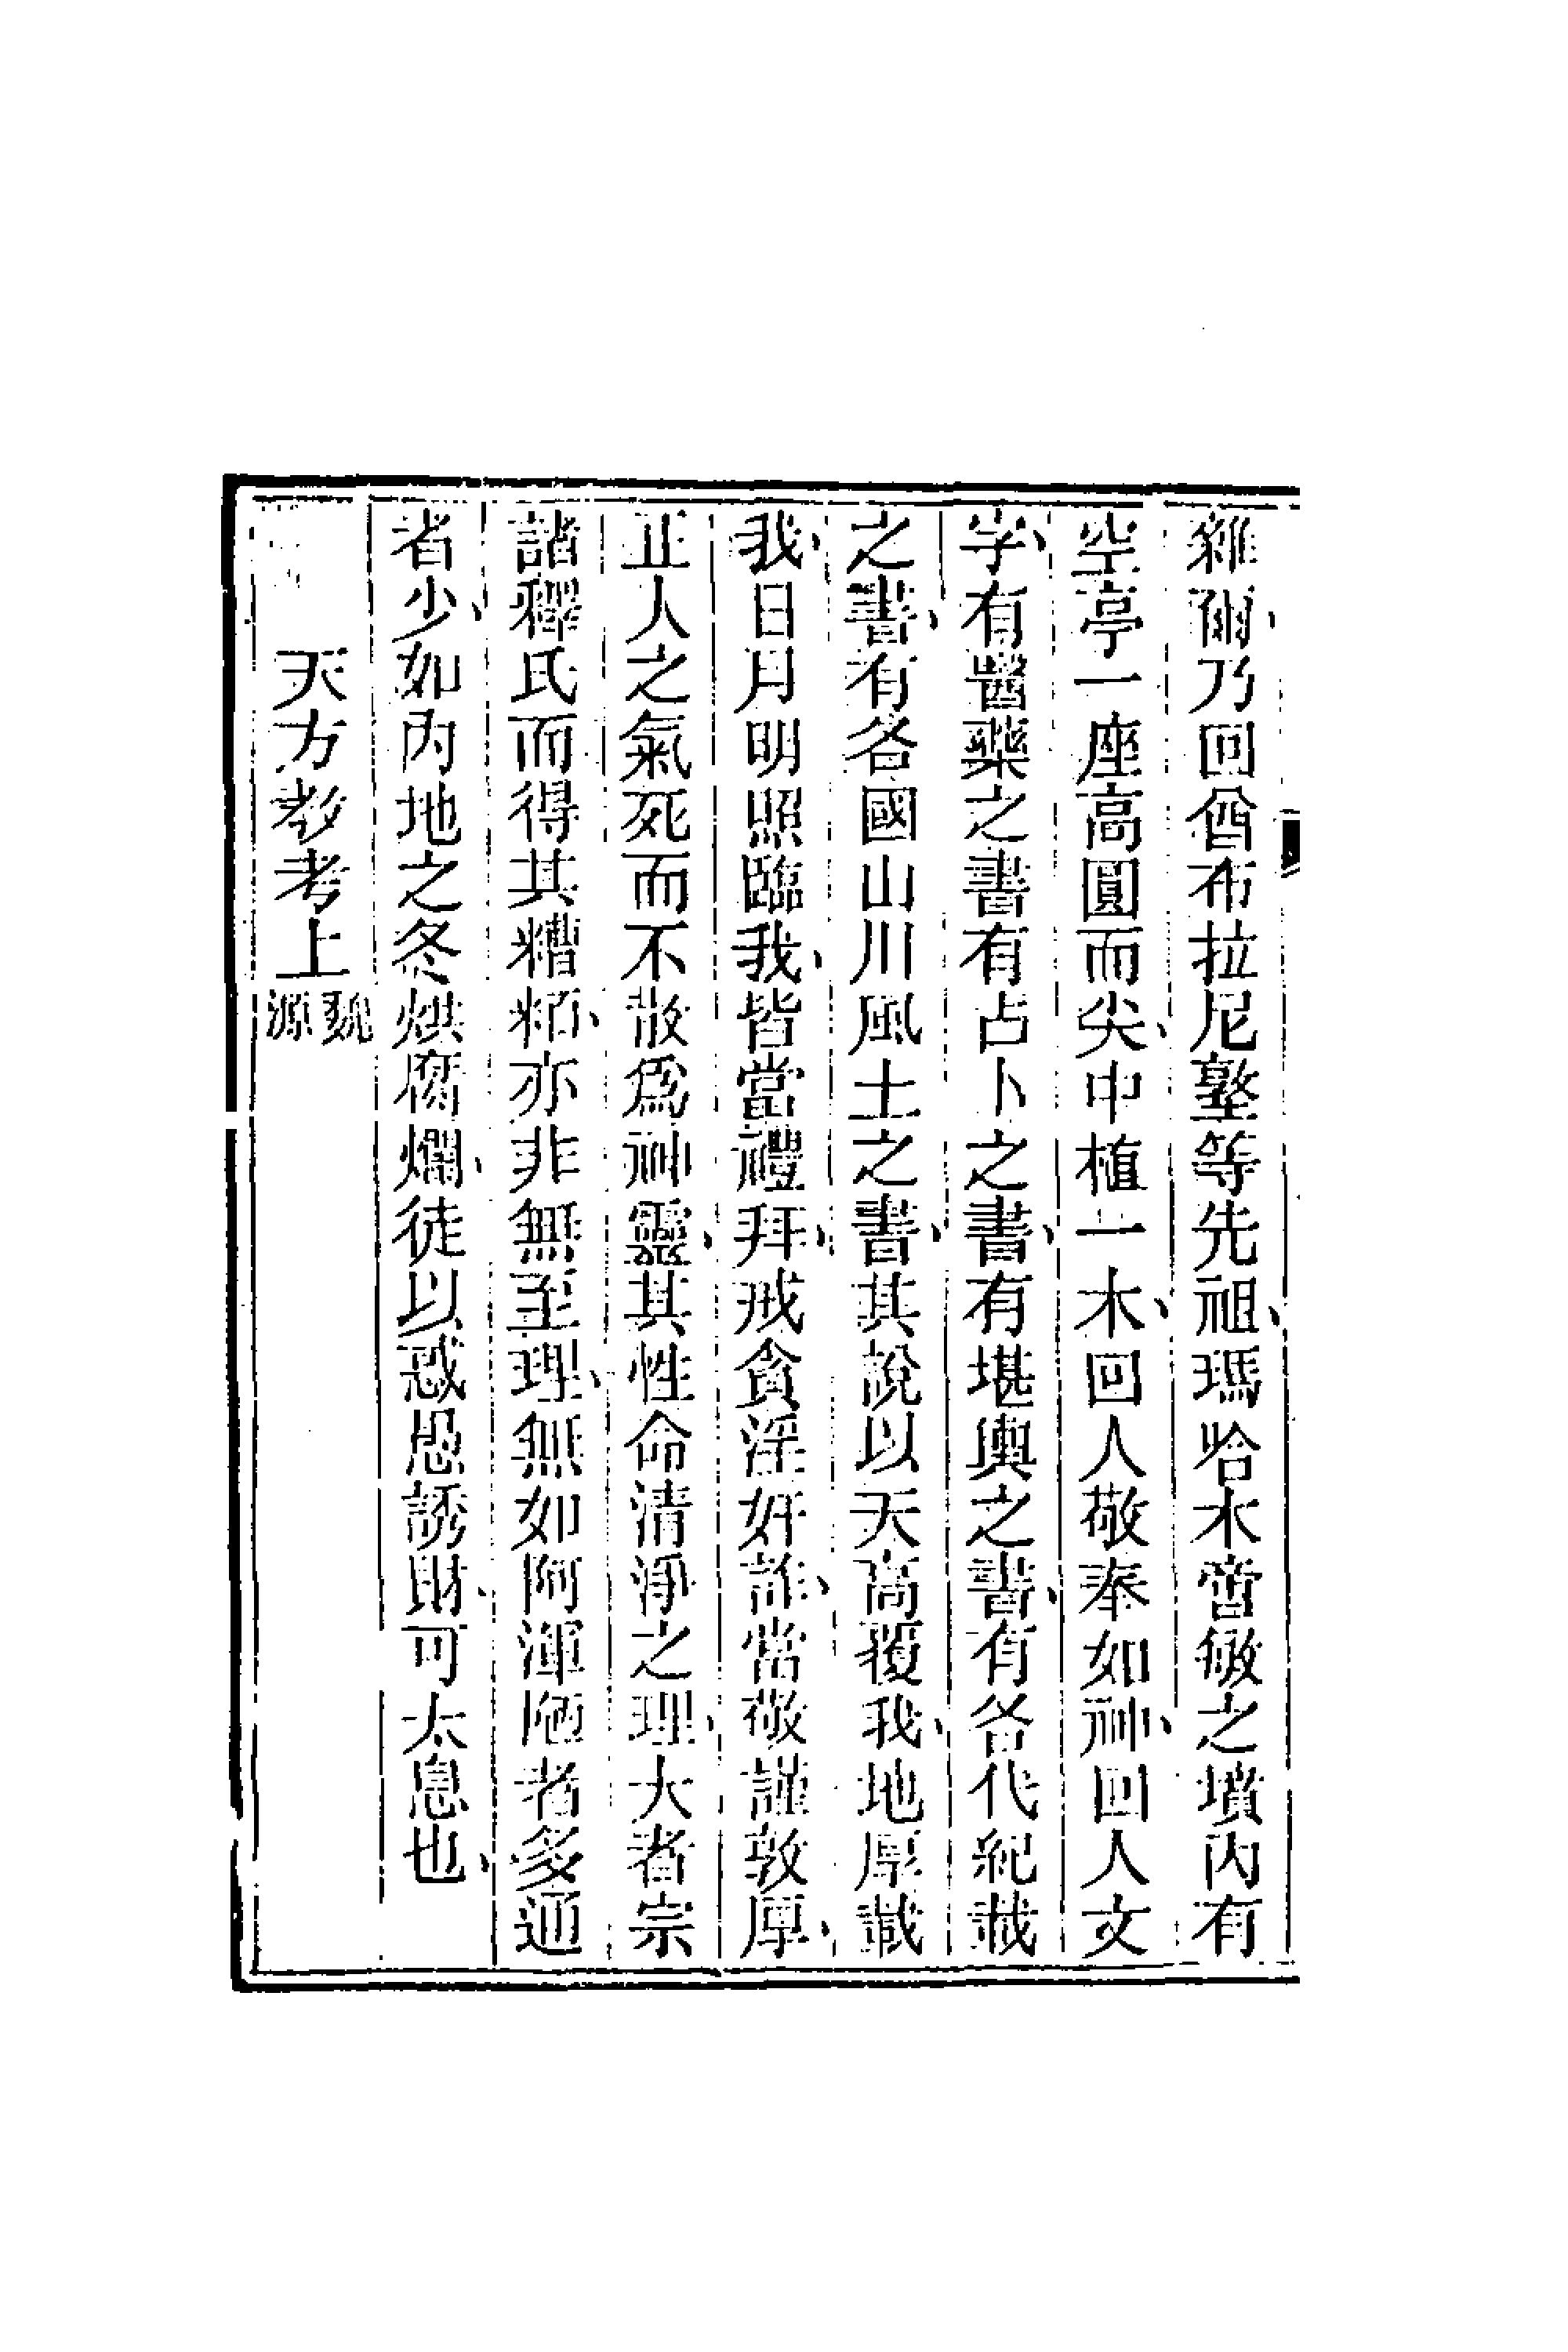 雜爾乃回酋布拉尼墪等先祖瑪哈木啻敏之墳內有
空亭一座高圓而尖中植一木回人敬奉如神回人文
字有醫藥之書有占卜之書有堪輿之書有各代紀載
之書有各國山川風土之書其說以天高覆我地厚載
我日月明照臨我皆當禮拜戒貪淫奸詐當敬謹敦厚
正人之氣死而不散爲神靈其性命清淨之理大者宗
諸釋氏而得其糟粕亦非無至理無如阿渾陋者多通
者少如內地之冬烘腐爛徒以惑愚誘財可太息也
天方教考上魏源